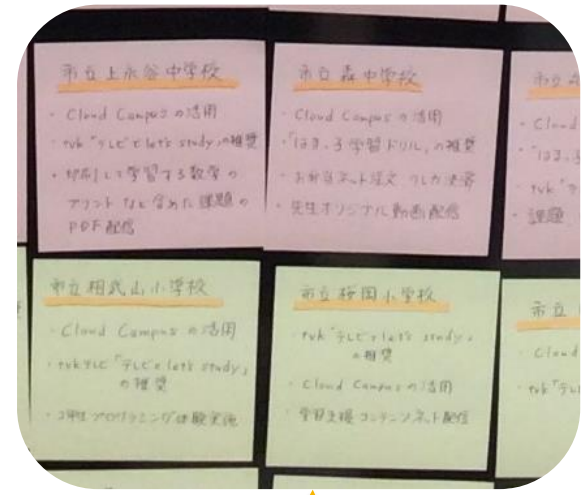 市立上永谷中学校
・Cloud Campusの活用
・tvk「テレビでlet's study」の推奨
・印刷して学習する数学の
プリントなど含めた課題の
PDF配信
市立森中学校
・Cloud Campusの活用
・「はま・う学習ドリル」の推奨
・お弁当ネット注文 クレカ決済
・先生オリジナル動画配信
・Cloud
・tvk
・課題
市立相武山小学校
・Cloud Campusの活用
・tvkテレビ「テレビでlet's study」
の推奨
・2年生プログラミング体験実施
市立桜岡小学校
・tvk「テレビでlet's study」
の推奨
・Cloud Campusの活用
・学習支援コンテンツネット配信
市立
・Cloud
・tvk